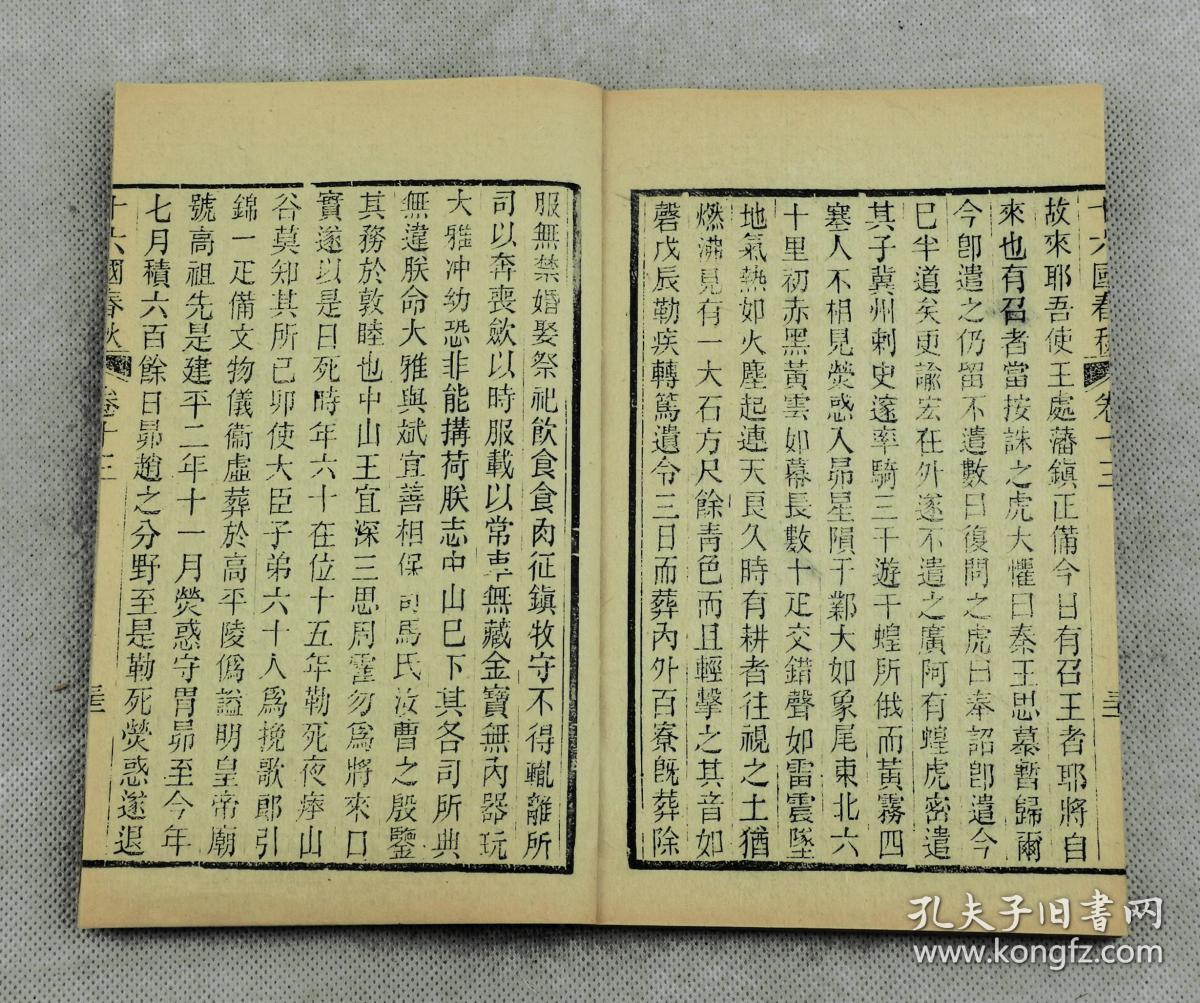 十六國春秋 卷十三
故來耶吾使王處藩鎮正備今日有召王者耶將自
來也有召者當按誅之虎大懼曰秦王思慕暫歸爾
今卽遣之仍留不遣數日復問之虎曰奉詔卽遣今
巳半道矣更諭宏在外遂不遣之廣阿有蝗虎密遣
其子冀州刺史邃率騎三千遊于蝗所俄而黃霧四
塞人不相見熒惑入昴星隕于鄴大如象尾東北六
十里初赤黑黃雲如幕長數十疋交錯聲如雷雲墜
地氣熱如火塵起連天良久時有耕者往視之土猶
燃沸見有一大石方尺餘靑色而且輕擊之其音如
磬戊辰勒疾轉篤遺令三日而葬內外百寮旣葬除
服無禁婚娶祭祀飮食食肉征鎮牧守不得輒離所
司以奔喪歛以時服載以常車無藏金寶無內器玩
大雅沖幼恐非能搆荷朕志中山巳下其各司所典
無違朕命大雅與斌宜善相保司馬氏汝曹之殷鑒
其務於敦睦也中山王宜深三思周霍勿爲將來口
實遂以是日死時年六十在位十五年勒死夜瘞山
谷莫知其所己卯使大臣子弟六十人爲挽歌郎引
錦一疋備文物儀衞虛葬於高平陵僞謚明皇帝廟
號高祖先是建平二年十一月熒惑守胃昴至今年
七月積六百餘日昴趙之分野至是勒死熒惑遂退
十六國春秋 卷十三
孔夫子旧书网
www.kongfz.com